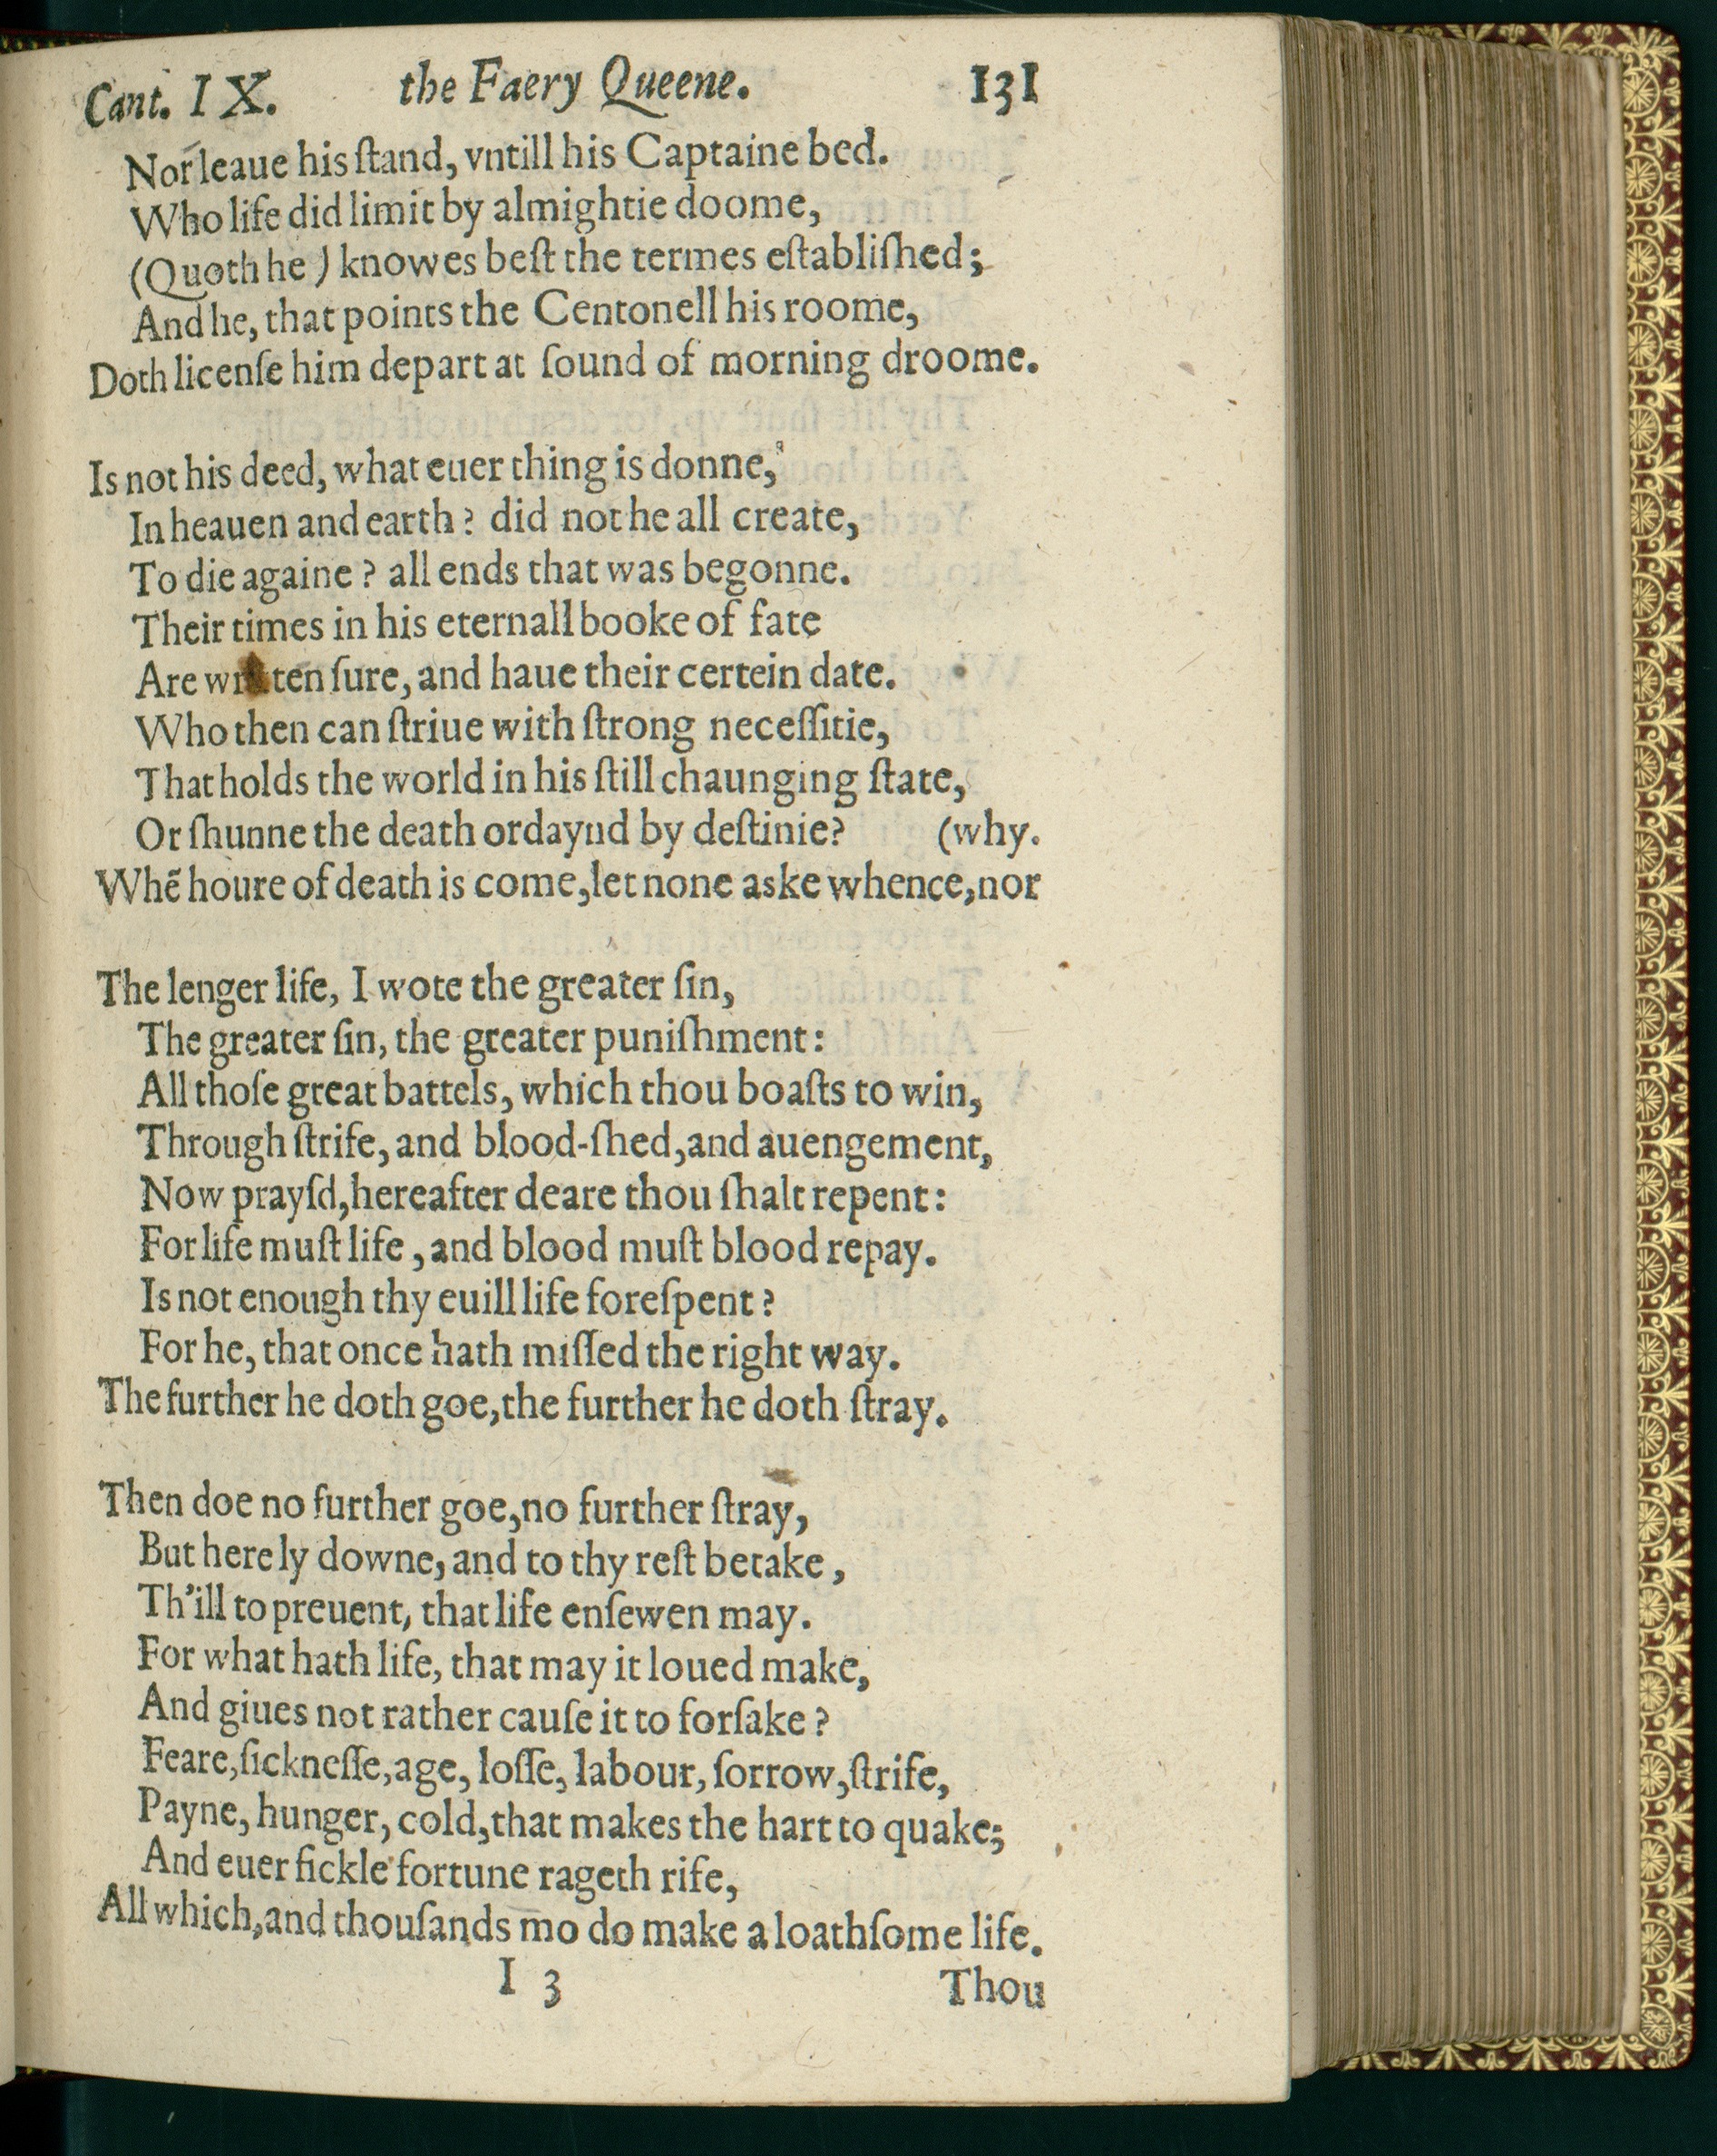 Cant. IX. the Faery Queene. 131
Nor leaue his ſtand, vntill his Captaine bed.
Who life did limit by almightie doome,
(Quoth he) knowes beſt the termes eſtabliſhed;
And he, that points the Centonell his roome,
Doth licenſe him depart at ſound of morning droome.
Is not his deed, what euer thing is donne,
In heauen and earth? did not he all create,
To die againe? all ends that was begonne.
Their times in his eternall booke of fate
Are written ſure, and haue their certein date.
Who then can ſtriue with ſtrong neceſſitie,
That holds the world in his ſtill chaunging ſtate,
Or ſhunne the death ordaynd by deſtinie? (why.
Whẽ houre of death is come, let none aske whence, nor
The lenger life, I wote the greater ſin,
The greater ſin, the greater puniſhment:
All thoſe great battels, which thou boaſts to win,
Through ſtrife, and blood-ſhed, and auengement,
Now prayſd, hereafter deare thou ſhalt repent:
For life muſt life, and blood muſt blood repay.
Is not enough thy euill life foreſpent?
For he, that once hath miſſed the right way.
The further he doth goe, the further he doth ſtray.
Then doe no further goe, no further ſtray,
But here ly downe, and to thy reſt betake,
Th'ill to preuent, that life enſewen may.
For what hath life, that may it loued make,
And giues not rather cauſe it to forſake?
Feare, ſickneſſe, age, loſſe, labour, ſorrow, ſtrife,
Payne, hunger, cold, that makes the hart to quake;
And euer fickle fortune rageth rife,
All which, and thouſands mo do make a loathſome life.
I 3 Thou